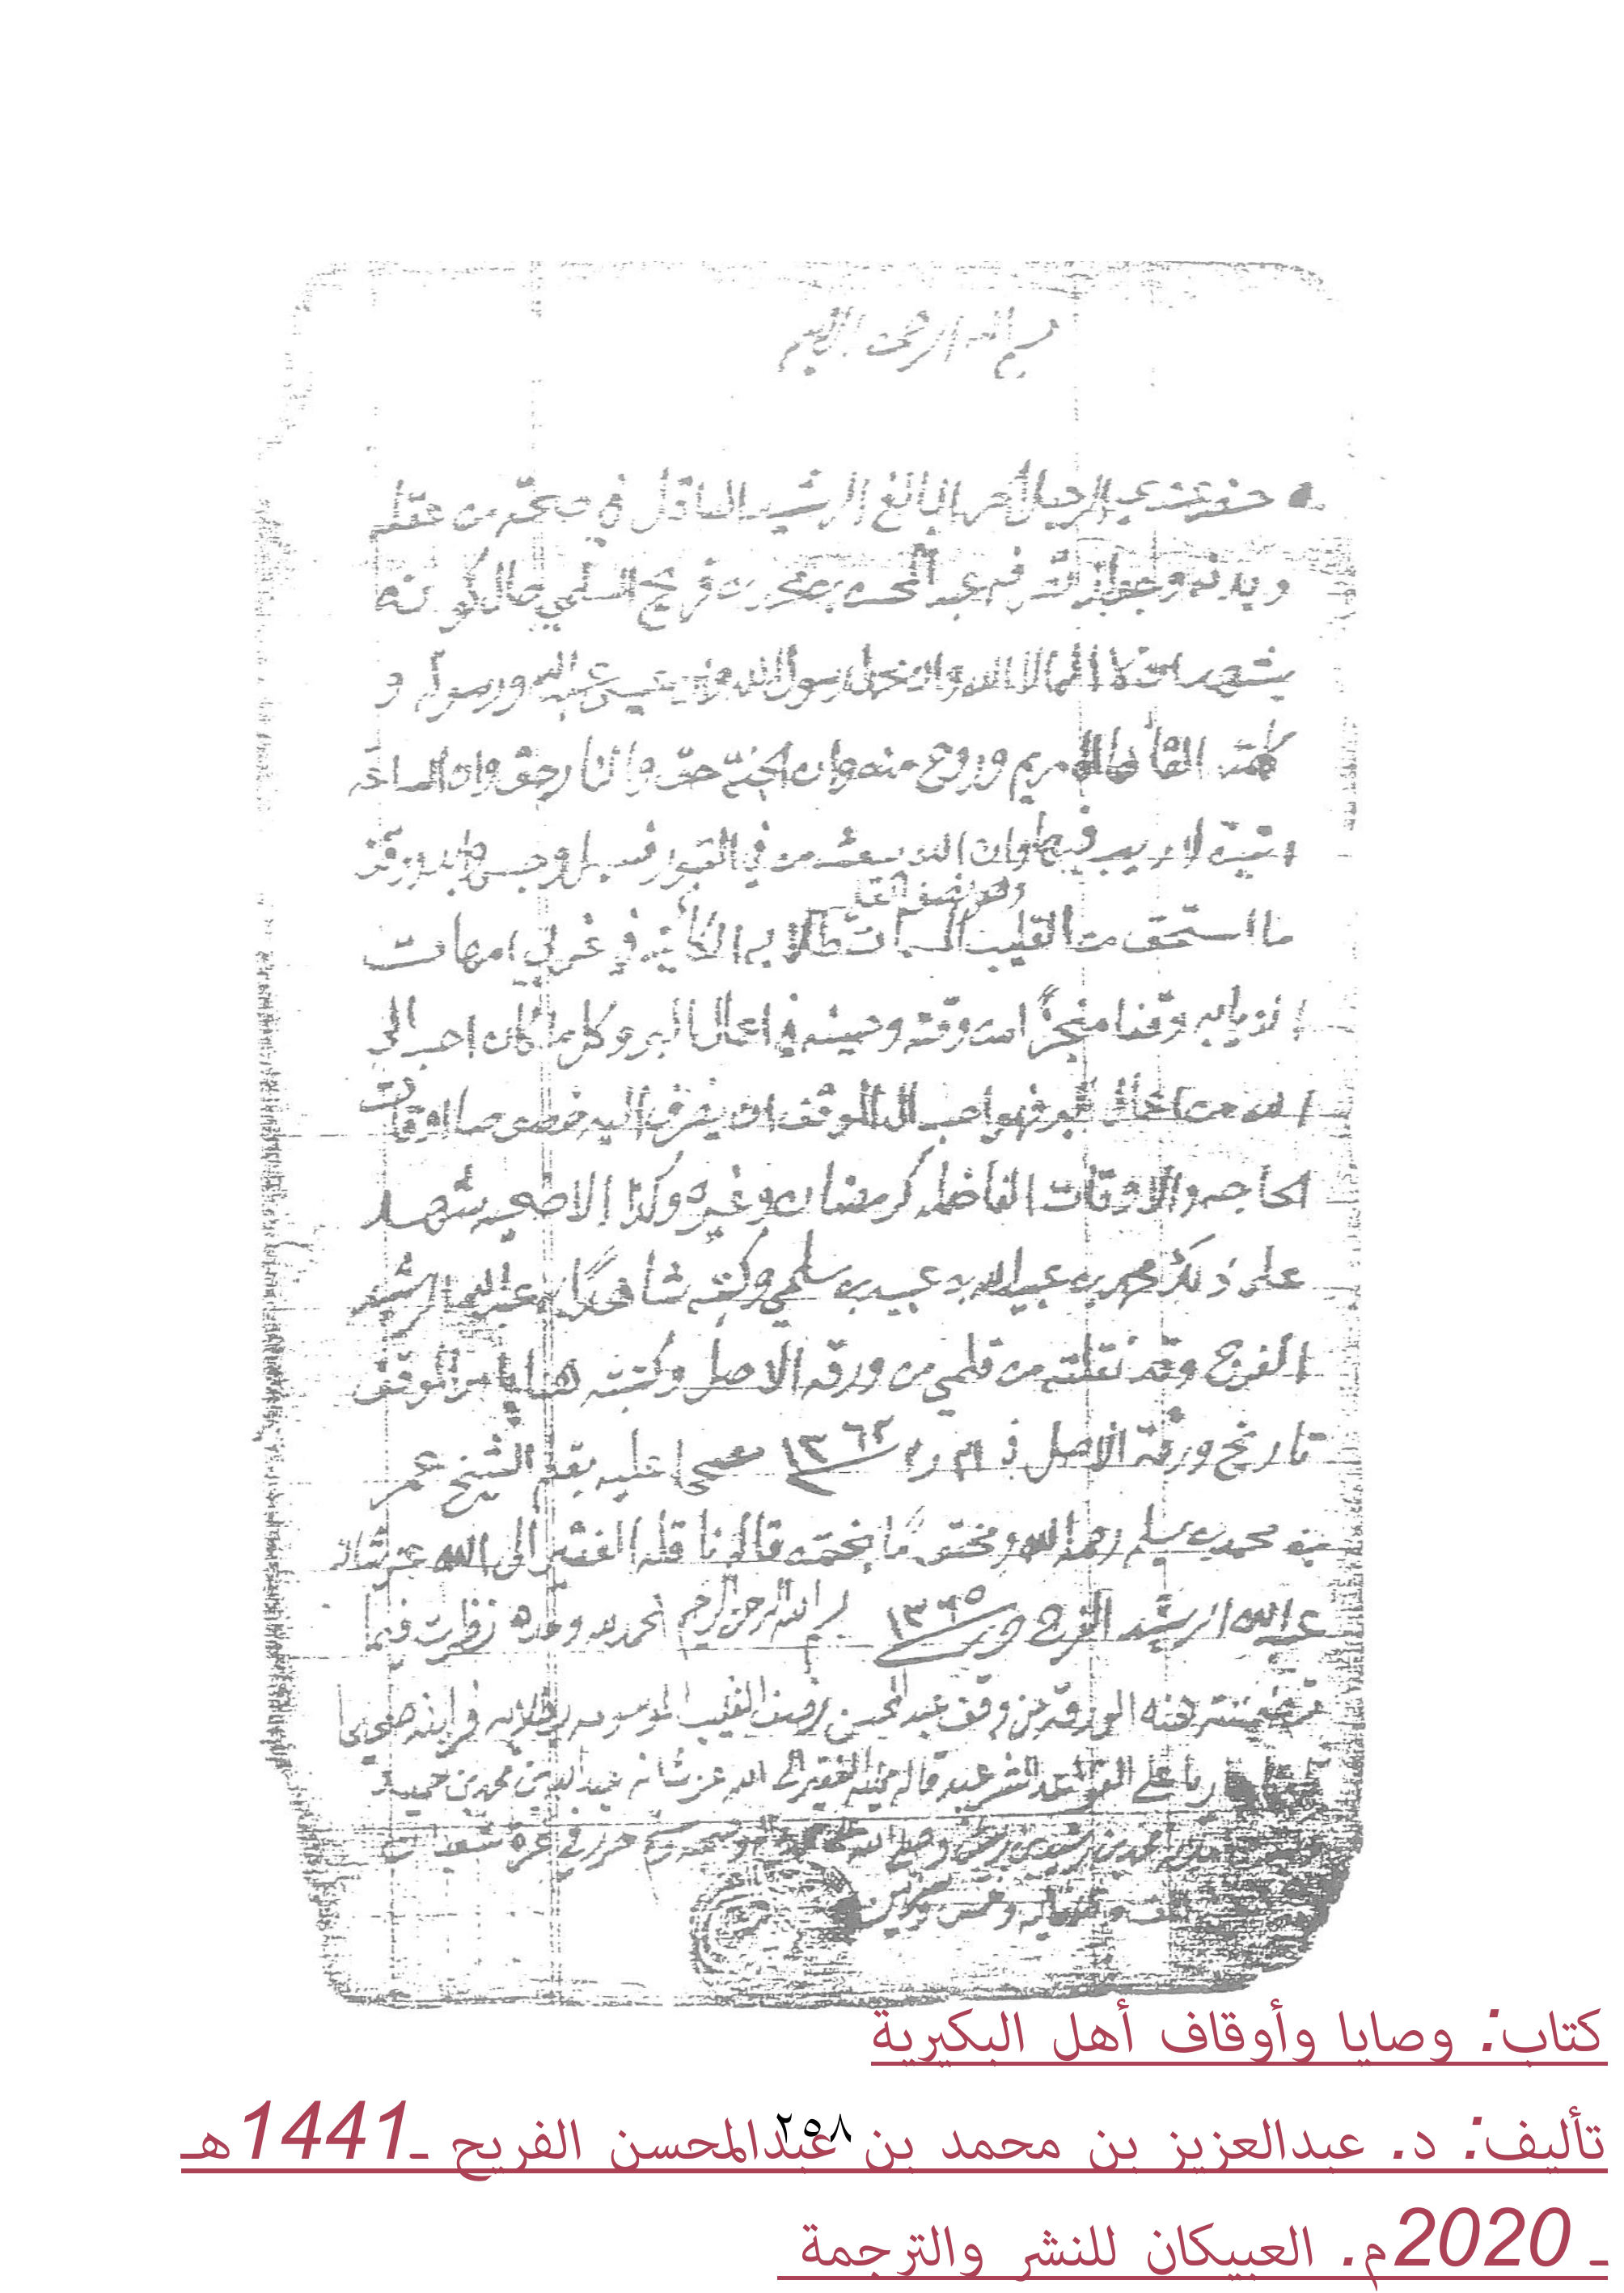 بسم الله الرحمن الرحيم
حضر عندي الرجل الحر البالغ الرشيد العاقل في صحة من عقله
وبدنه وجواز تصرفه عبد المحسن بن محمد بن فريح السلمي حال كونه
يشهد ان لا اله الا الله وان محمدا رسول الله وان عيسى عبد الله ورسوله و
كلمته القاها الى مريم وروح منه وان الجنة حق والنار حق وان الساعة
اتية لا ريب فيها وان الله يبعث من في القبور فسبل وحبس وابد ووقف
وهو نصف القليب
ما استحق من القليب المسمات طلابه الكائنة في غربي امهات
الذيابه وقفا منجزا من وقته وحينه في اعمال البر وكل ما كان احب الى
الله من اعمال البر فهو احب الى الموقف ان يصرف اليه خصوصا اوقات
الحاجه والاوقات الفاضله كرمضان وغيره وكذا الاضحيه شهد
على ذلك محمد بن عبدالله بن عبيد بن سلمي وكتبه شاهدا به عبدالله الرشيد
الفرج وقد نقلته من قلمي من ورقه الاصل وكتبته هنا بامر الموقف
تاريخ ورقة الاصل في را ١٣٦٢ مسجى عليه بقلم الشيخ عمر
بن محمد بن سليم رحمه الله ومختوما بختمه قاله ناقله الفقير الى الله عز شانه
عبدالله الرشيد الفرج ١٣٦٥ بسم الله الرحمن الرحيم الحمد لله وحده نظرت فيما
تضمنته هذه الورقة من وقف عبد المحسن نصف القليب الموسومه بطلابه فرايته صحيحا
على القواعد الشرعية قاله ممليه الفقير الى الله عز شانه عبدالله بن محمد بن حميد
وصحبه وسلم حرر في غرة شعبان
وثلثمائه وخمس وستين
كتاب: وصايا وأوقاف أهل البكيرية
٢٥٨
تأليف: د. عبدالعزيز بن محمد بن عبدالمحسن الفريح ـ1441هـ
ـ 2020م. العبيكان للنشر والترجمة